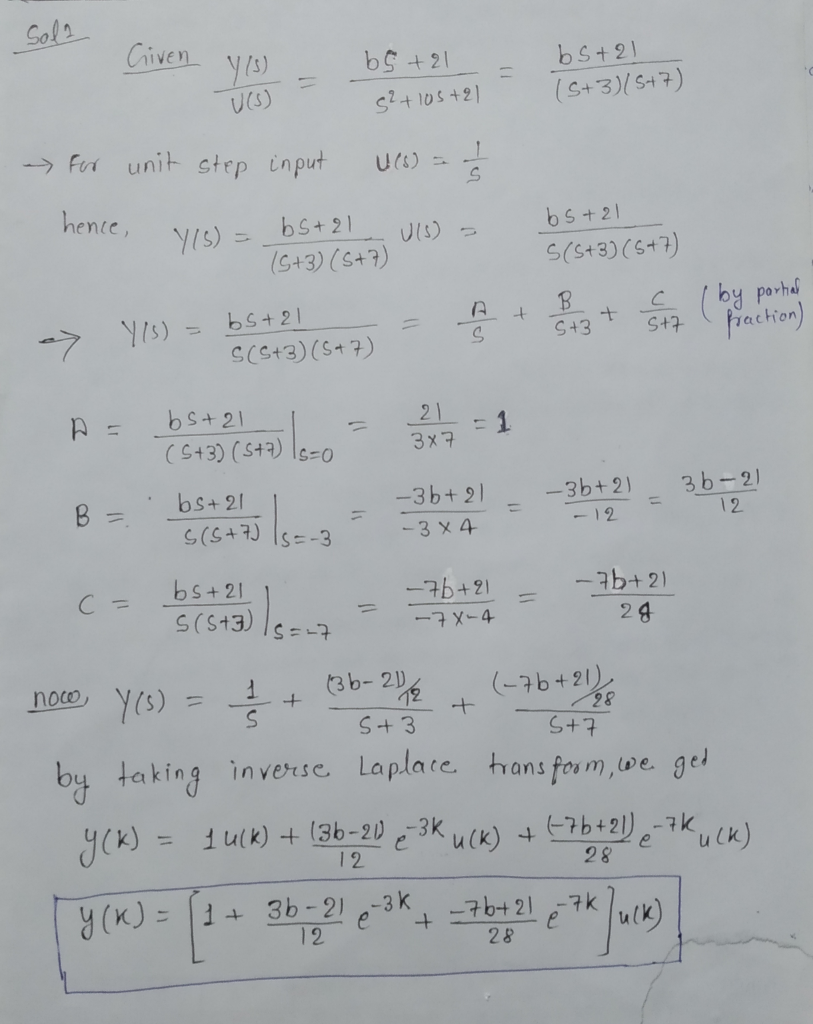 Sol 1
Given Y(s)/U(s) = bs+21/s²+10s+21 = bs+21/(s+3)(s+7)
→ For unit step input U(s) = 1/s
hence, Y(s) = bs+21/(s+3)(s+7) U(s) = bs+21/s(s+3)(s+7)
→ Y(s) = bs+21/s(s+3)(s+7) = A/s + B/s+3 + C/s+7 (by partial fraction)
A = bs+21/(s+3)(s+7) |s=0 = 21/3×7 = 1
B = bs+21/s(s+7) |s=-3 = -3b+21/-3×4 = -3b+21/-12 = 3b-21/12
C = bs+21/s(s+3) |s=-7 = -7b+21/-7×-4 = -7b+21/28
now, Y(s) = 1/s + (3b-21)/12/s+3 + (-7b+21)/28/s+7
by taking inverse Laplace transform, we get
y(k) = 1u(k) + (3b-21)/12 e^-3k u(k) + (-7b+21)/28 e^-7k u(k)
y(k) = [1 + 3b-21/12 e^-3k + -7b+21/28 e^-7k]u(k)